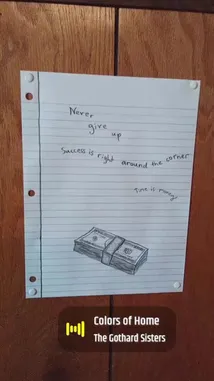 Never
give
up
Success is right around the corner
Time is money
Colors of Home
The Gothard Sisters